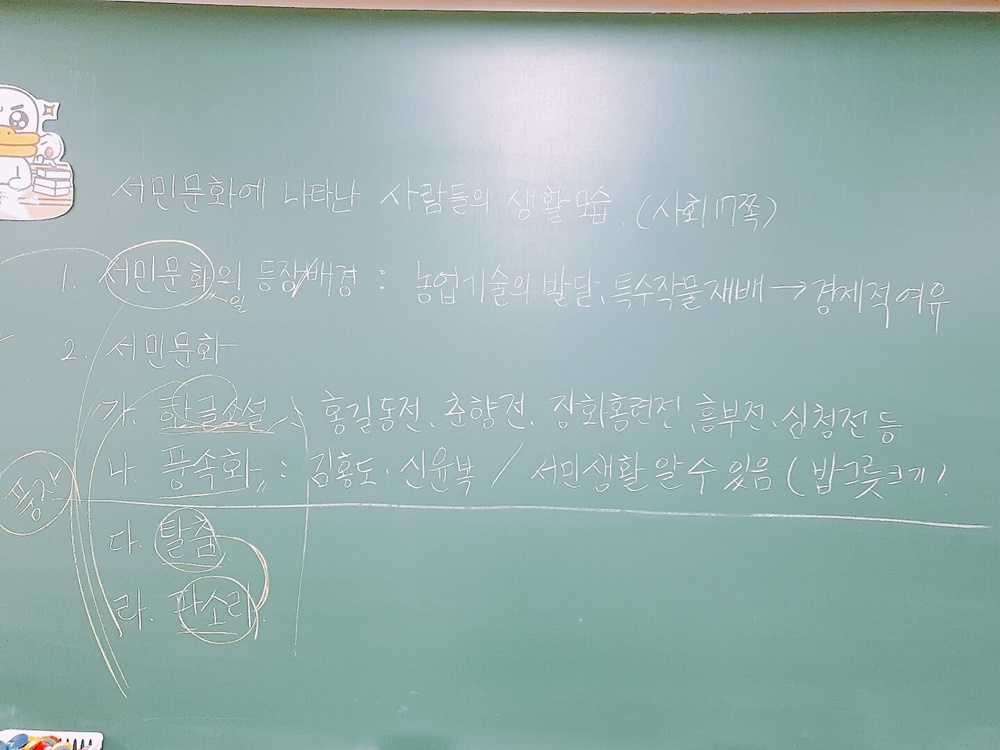 서민문화에 나타난 사람들의 생활 모습. (사회 117쪽)
1. 서민문화의 등장/배경 : 농업기술의 발달, 특수작물 재배 → 경제적 여유
일
2. 서민문화
가. 한글소설 : 홍길동전, 춘향전, 장화홍련전, 흥부전, 심청전 등
나. 풍속화 : 김홍도, 신윤복 / 서민생활 알 수 있음 (밥그릇크기)
풍자
다. 탈춤
라. 판소리